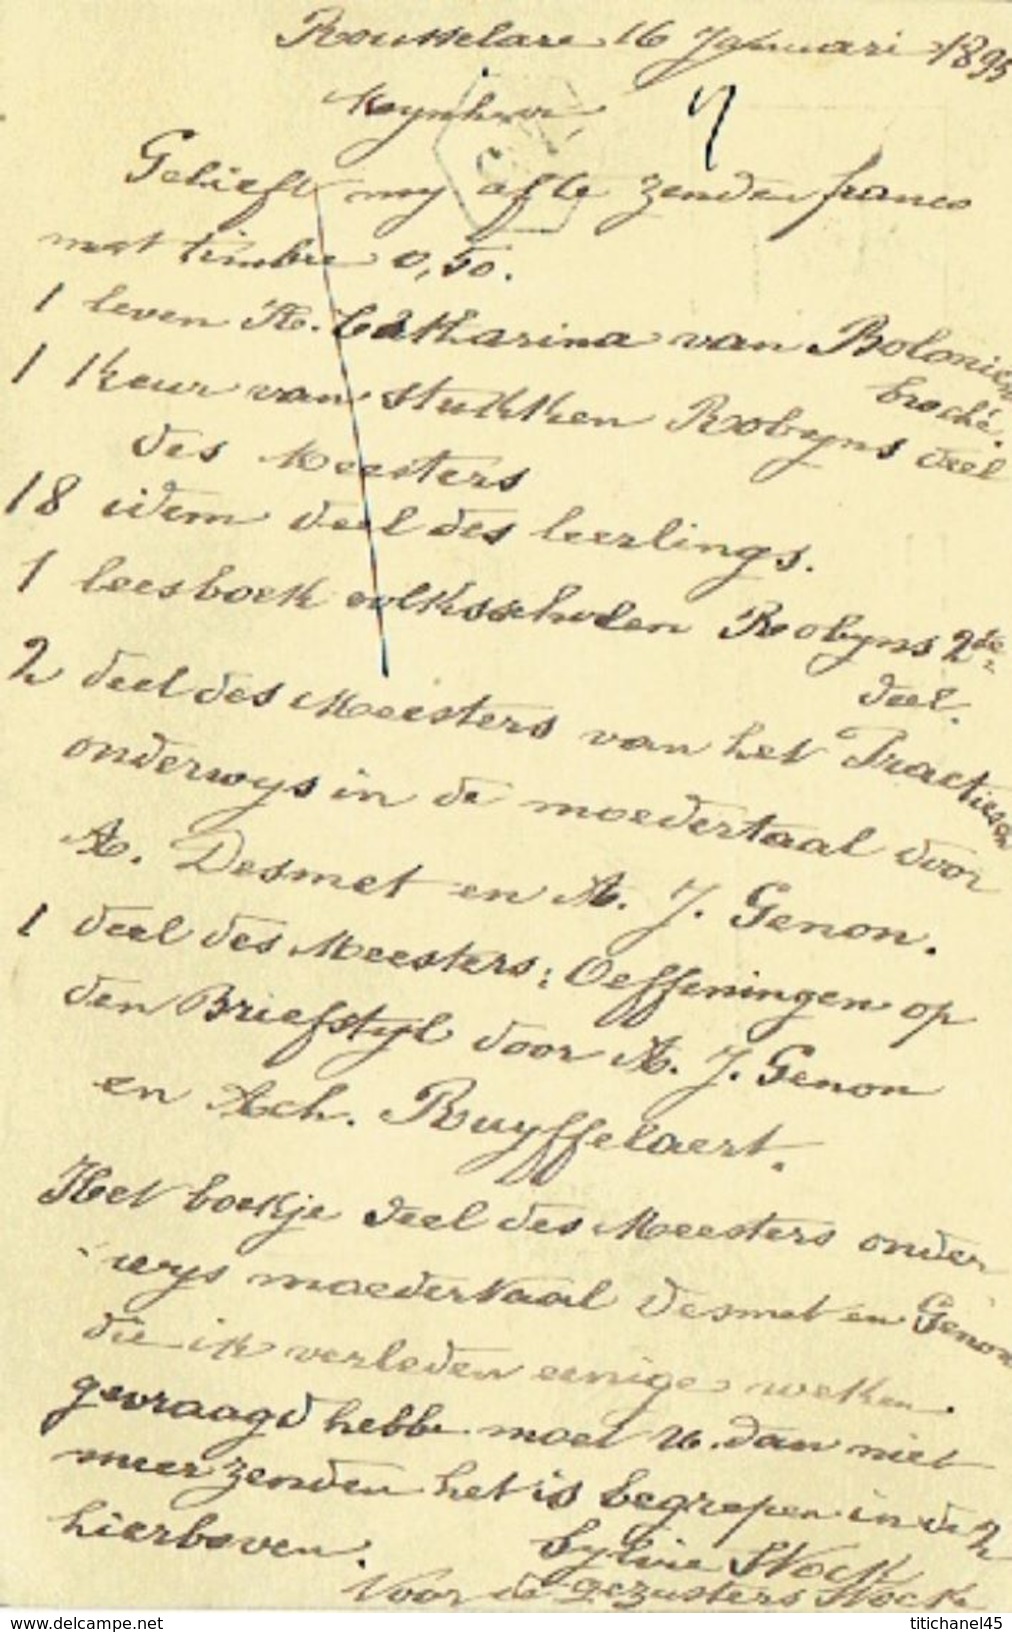 Rousselare 16 Januari 1895
Mynheer
Gelieft my af te zenden franco
met timbre 0,50.
1 leven H. Catharina van Bolonien
broché.
1 Keur van stukken Robyns deel
des Meesters
18 idem deel des leerlings.
1 leesboek volksscholen Robyns 2de
deel.
2 deel des Meesters van het Practiesch
onderwys in de moedertaal door
A. Desmet en A. J. Genon.
1 deel des Meesters: Oeffeningen op
den Briefstyl door A. J. Genon
en Ach. Ruyffelaert.
Het boekje deel des Meesters onder
wys moedertaal Desmet en Genon
die ik verleden eenige weken.
gevraagd hebbe moet U. dan niet
meer zenden het is begrepen in de 2
hierboven.
Sylvie Stock
Voor de gezusters Stock
titichanel45
delcampe.net